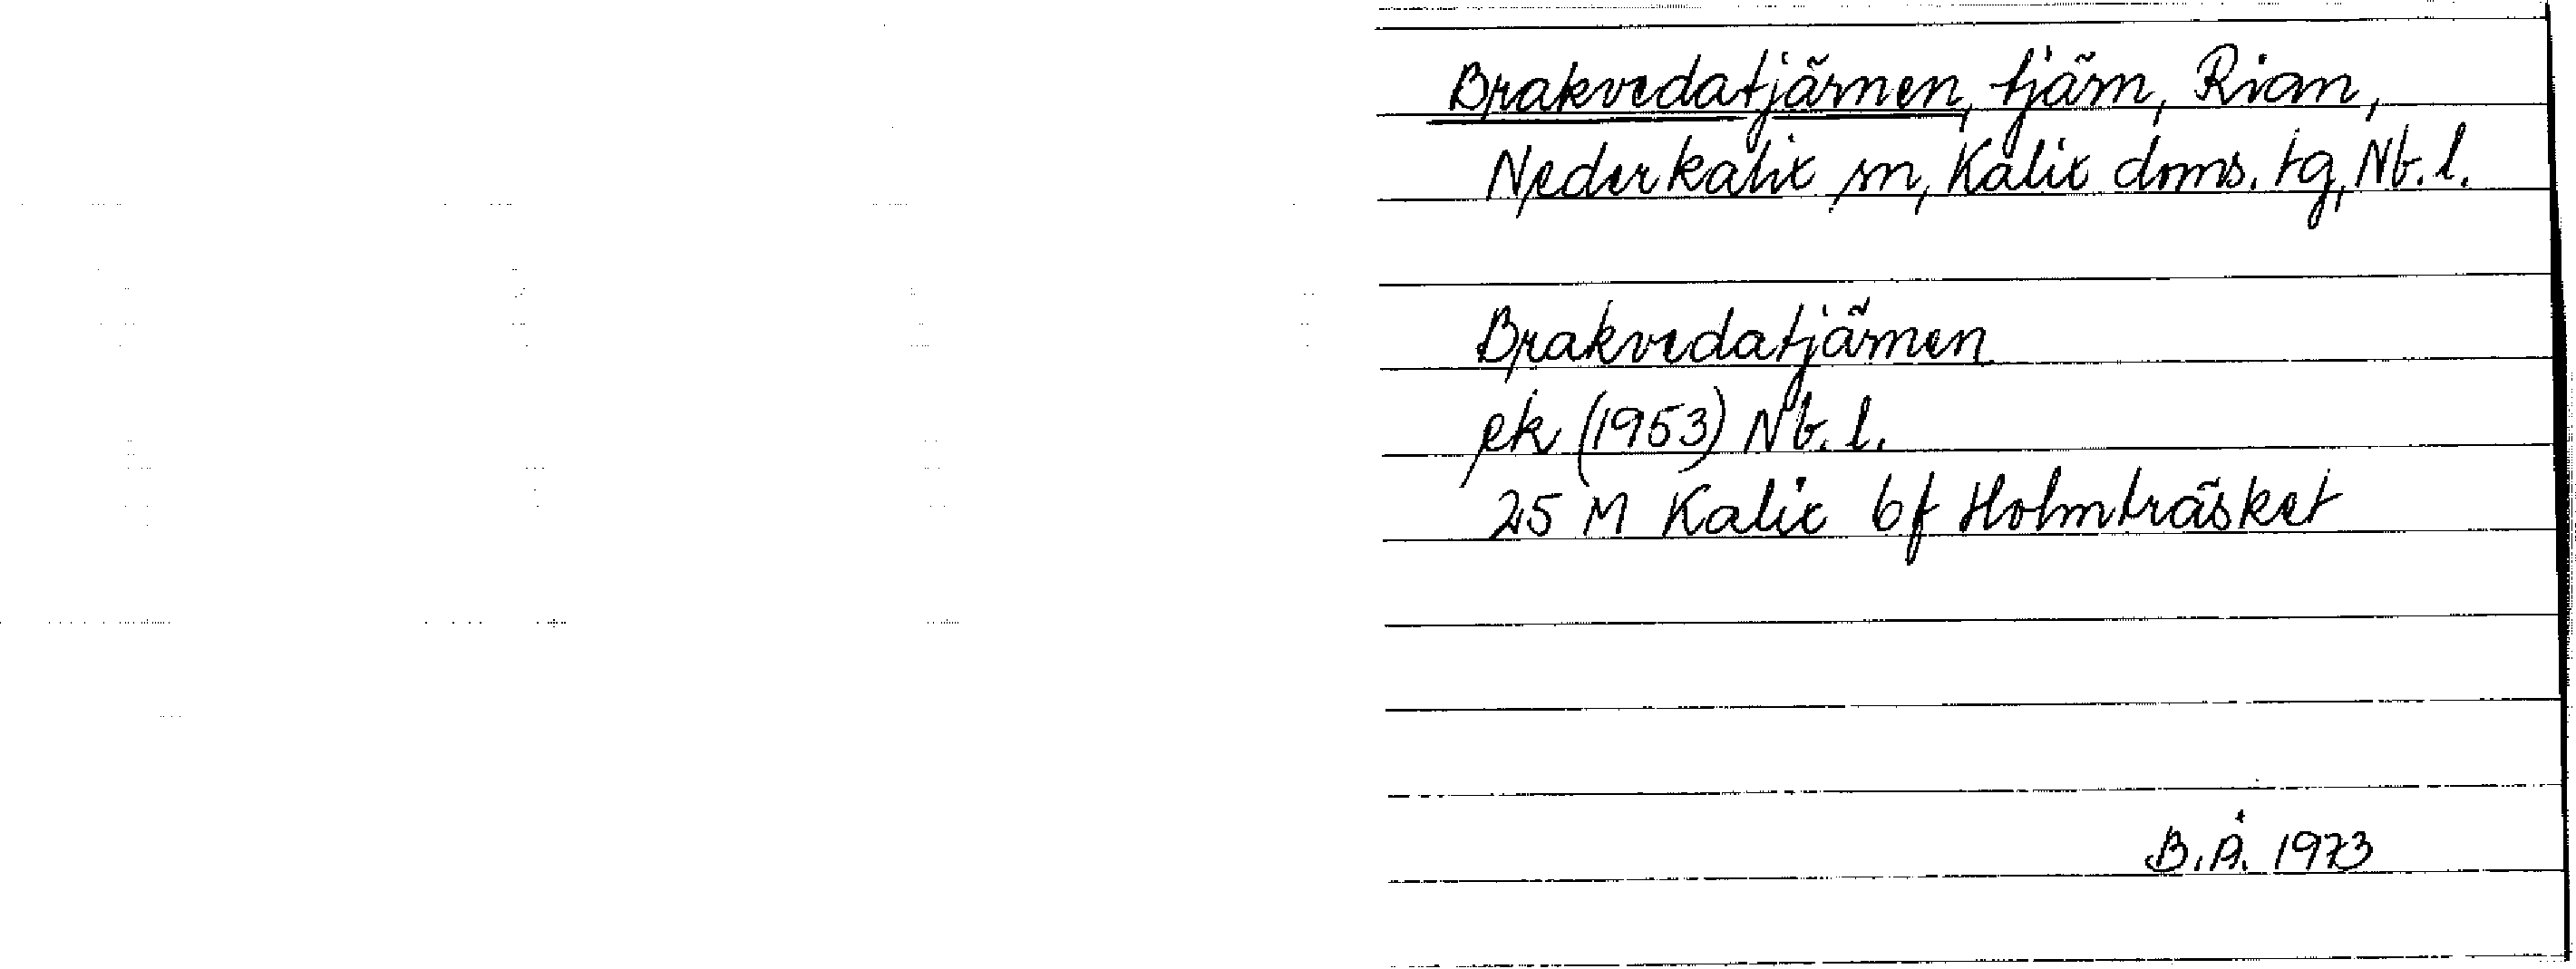 Brakvedatjärnen, tjärn, Rian,
Nederkalix sn, Kalix doms. tg, Nb. l.
Brakvedatjärnen
ek (1953) Nb. l.
25 M Kalix bf Holmträsket
B. Å. 1973